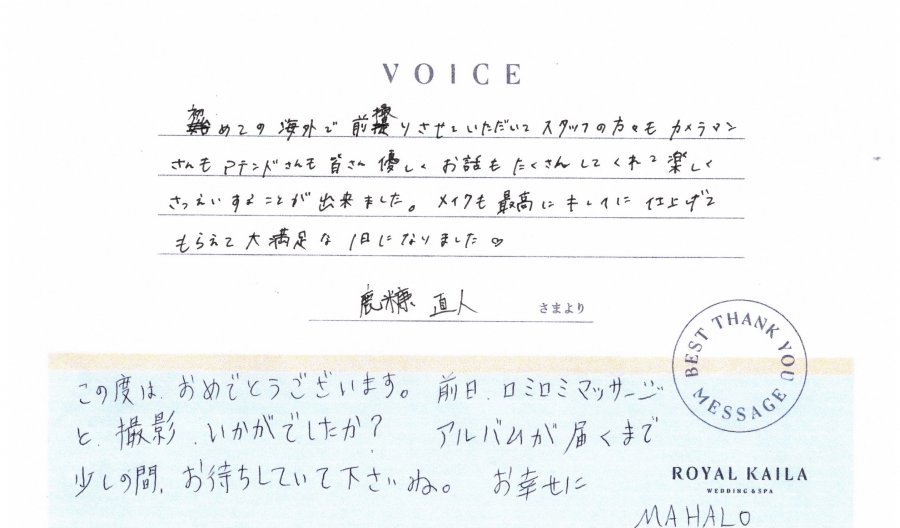 VOICE
初めての海外で前撮りさせていただいてスタッフの方々もカメラマン
さんもアテンドさんも皆さん優しくお話もたくさんしてくれて楽しく
さつえいすることが出来ました。メイクも最高にキレイに仕上げて
もらえて大満足な1日になりました♡
鹿糠 直人 さまより
BEST THANK YOU MESSAGE
この度は、おめでとうございます。前日、ロミロミマッサージ
と、撮影、いかがでしたか？ アルバムが届くまで
少しの間、お待ちしていて下さいね。 お幸せに
ROYAL KAILA
WEDDING & SPA
MAHALO